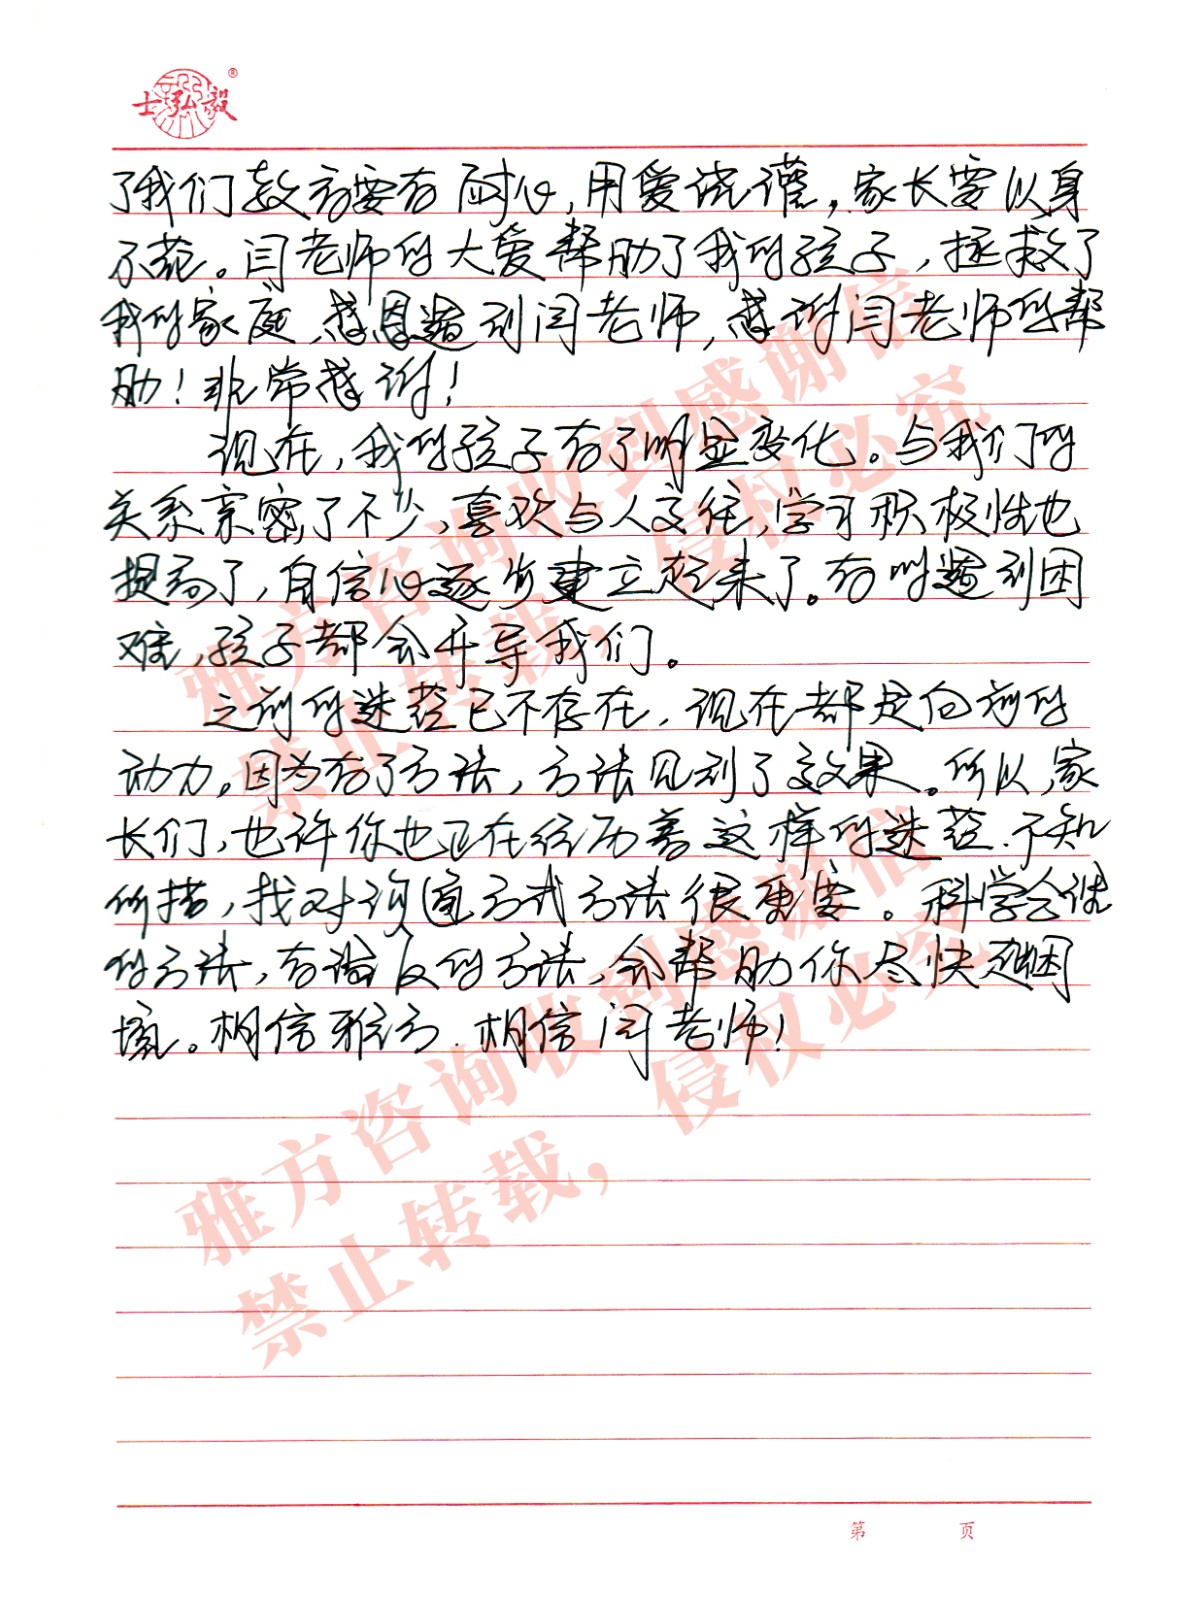 士弘毅®
了我们教育要有耐心,用爱浇灌,家长要以身
示范。闫老师的大爱帮助了我的孩子,拯救了
我的家庭,感恩遇到闫老师,感谢闫老师的帮
助!非常感谢!
现在,我的孩子有了明显变化。与我们的
关系亲密了不少,喜欢与人交往,学习积极性也
提高了,自信心逐步建立起来了。有时遇到困
难,孩子都会开导我们。
之前的迷茫已不存在,现在都是向前的
动力。因为有了方法,方法见到了效果。所以,家
长们,也许你也正在经历着这样的迷茫.不知
所措,找对沟通方式方法很重要。科学合法
的方法,有谱的方法,会帮助你尽快走出困
境。相信雅方.相信闫老师!
第 页
雅方咨询收到感谢信
禁止转载,侵权必究
雅方咨询收到感谢信
禁止转载,侵权必究